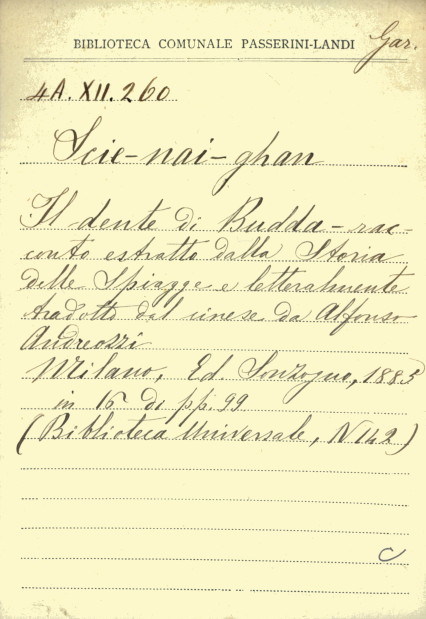 BIBLIOTECA COMUNALE PASSERINI-LANDI
Gar.
4A. XII. 260
Scie-nai-ghan
Il dente di Budda - rac-
conto estratto dalla Storia
delle Spiagge e letteralmente
tradotto dal cinese da Alfonso
Andreozzi
Milano, Ed. Sonzogno, 1885
in 16 di pp. 99
(Biblioteca Universale, N 142)
C